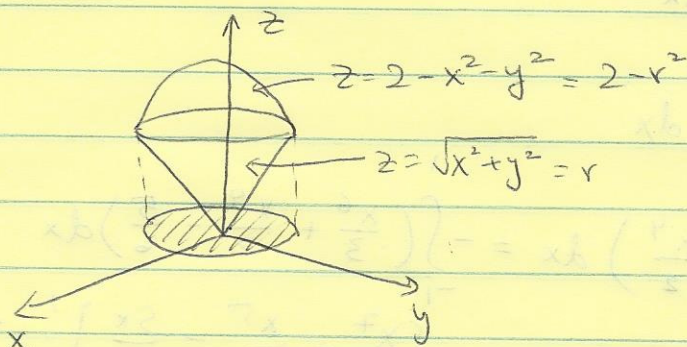 z
z = 2 - x² - y² = 2 - r²
z = √(x² + y²) = r
x
y